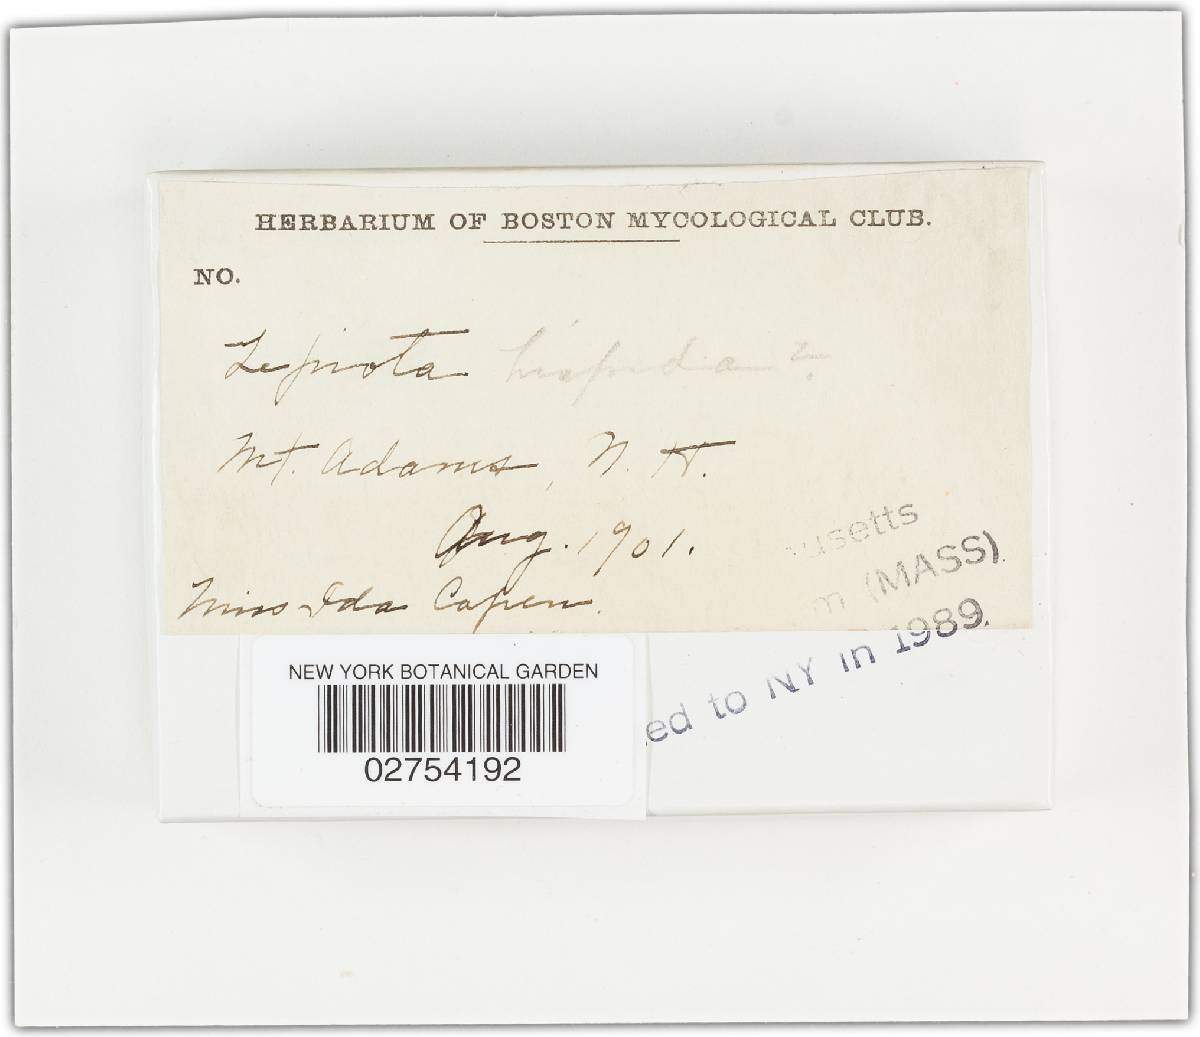 HERBARIUM OF BOSTON MYCOLOGICAL CLUB.
NO.
Lepiota hispida ?
Mt. Adams, N. H.
Aug. 1901.
Miss Ida Capen.
usetts
m (MASS)
ed to NY in 1989.
NEW YORK BOTANICAL GARDEN
02754192